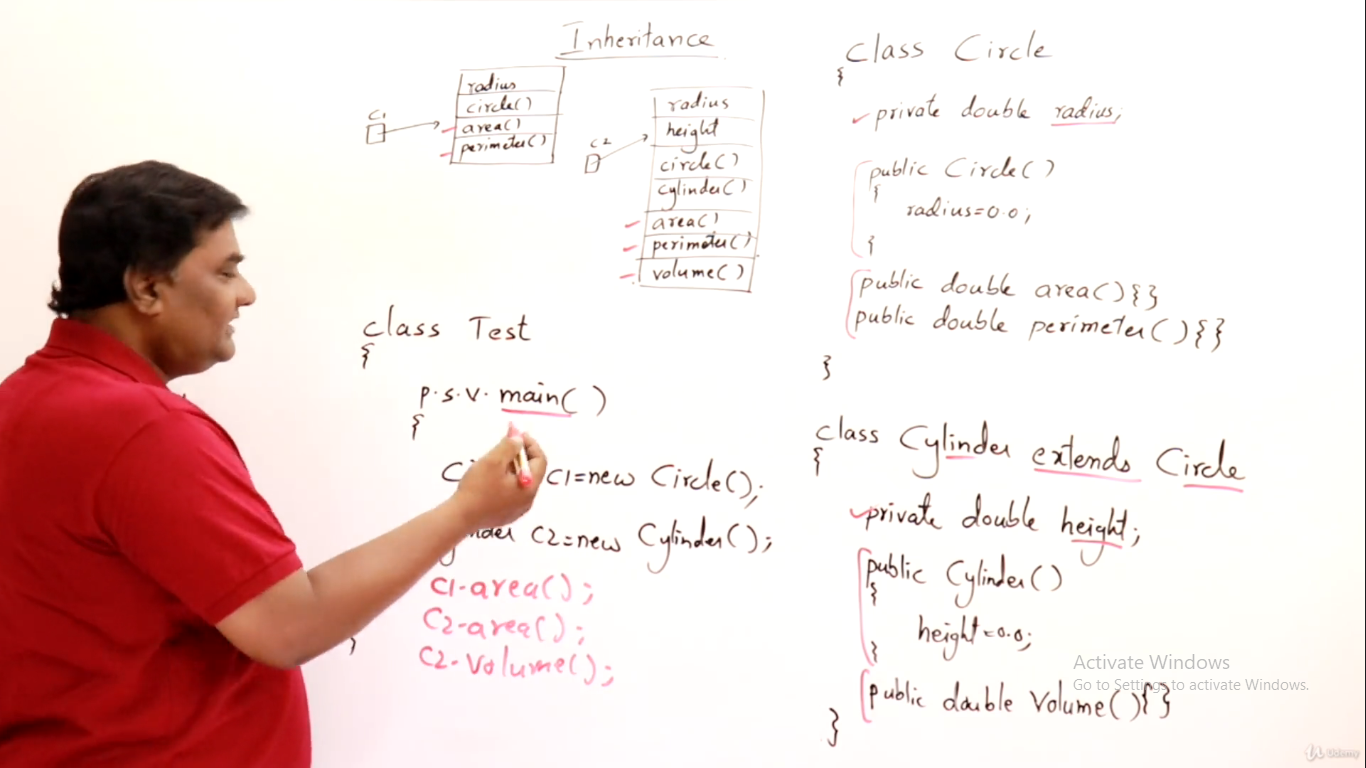 Inheritance
C1
radius
circle()
area()
perimeter()
C2
radius
height
circle()
cylinder()
area()
perimeter()
volume()
class Test
{
p.s.v. main()
{
C1=new Circle();
C2=new Cylinder();
C1.area();
C2.area();
C2.volume();
}
class Circle
{
private double radius;
public Circle()
{
radius=0.0;
}
public double area(){}
public double perimeter(){}
}
class Cylinder extends Circle
{
private double height;
public Cylinder()
{
height=0.0;
}
public double Volume(){}
}
Activate Windows
Go to Settings to activate Windows.
Udemy